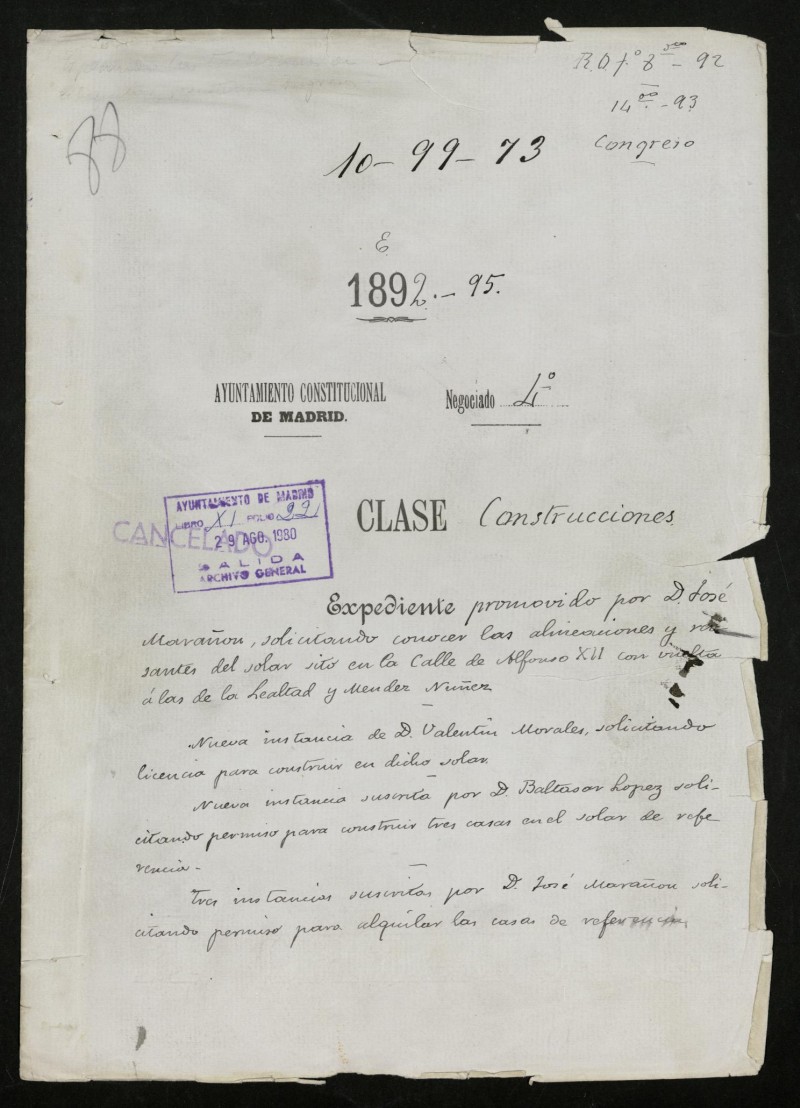 R.O. fº 8 - 92
14 - 93
Congreso
10-99-73
E
1892.- 95.
AYUNTAMIENTO CONSTITUCIONAL
DE MADRID.
Negociado 4º
CLASE Construcciones
AYUNTAMIENTO DE MADRID
LIBRO XI FOLIO 221
CANCELADO
29 AGO. 1980
SALIDA
ARCHIVO GENERAL
Expediente promovido por D. José
Marañon, solicitando conocer las alineaciones y ra-
santes del solar sito en la Calle de Alfonso XII con vuelta
á las de la Lealtad y Mendez Nuñez
Nueva instancia de D. Valentin Morales, solicitando
licencia para construir en dicho solar.
Nueva instancia suscrita por D. Baltasar Lopez soli-
citando permiso para construir tres casas en el solar de refe
rencia-
Tres instancias suscritas por D. José Marañon soli-
citando permiso para alquilar las casas de referencia